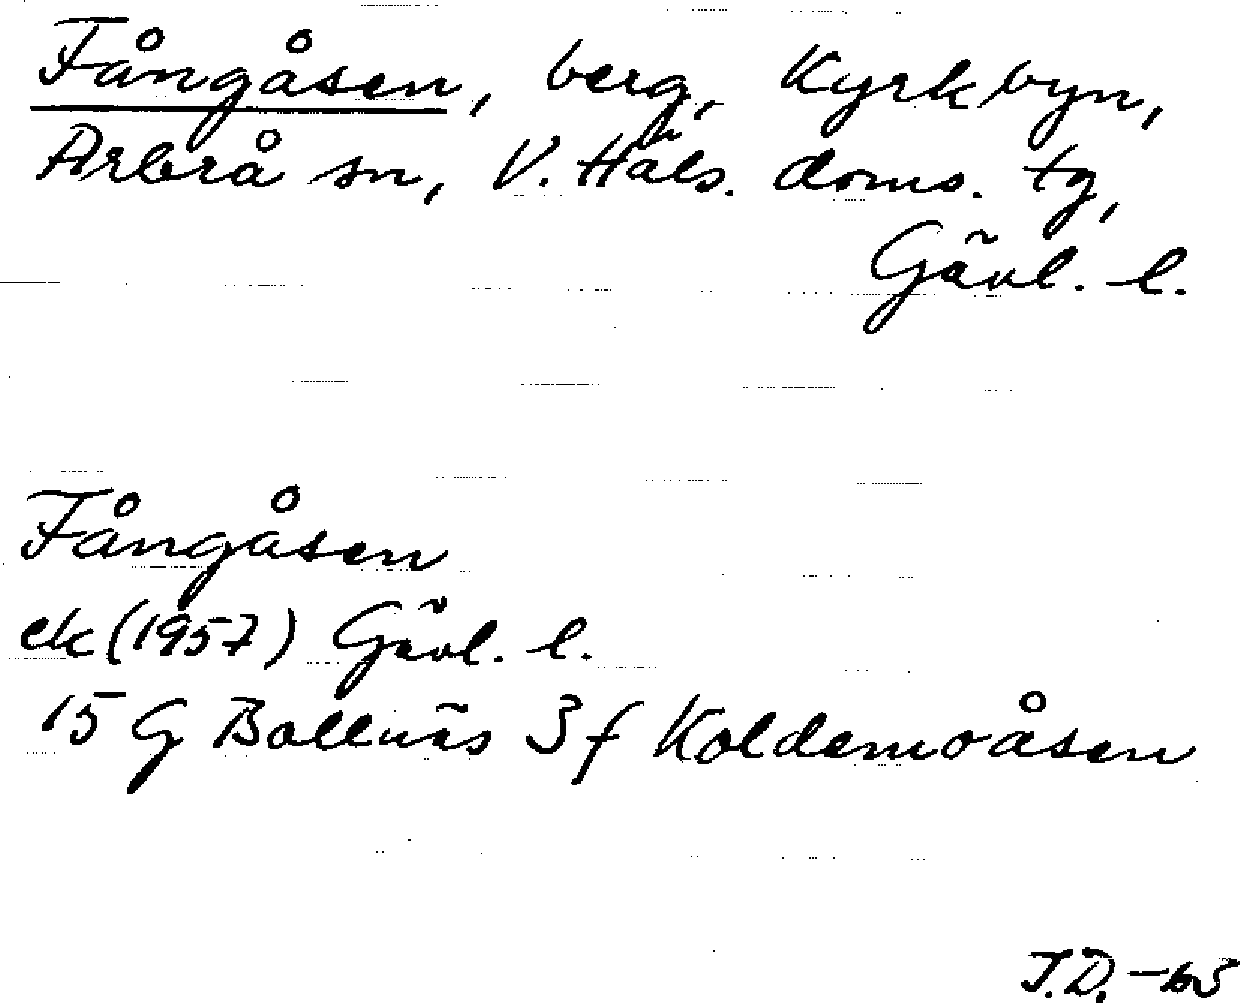 Fångåsen, berg, Kyrkbyn,
Arbrå sn, V. Häls. doms. tg,
Gävl. l.
Fångåsen
ek (1957) Gävl. l.
15 G Bollnäs 3 f Koldemoåsen
J.D. -65